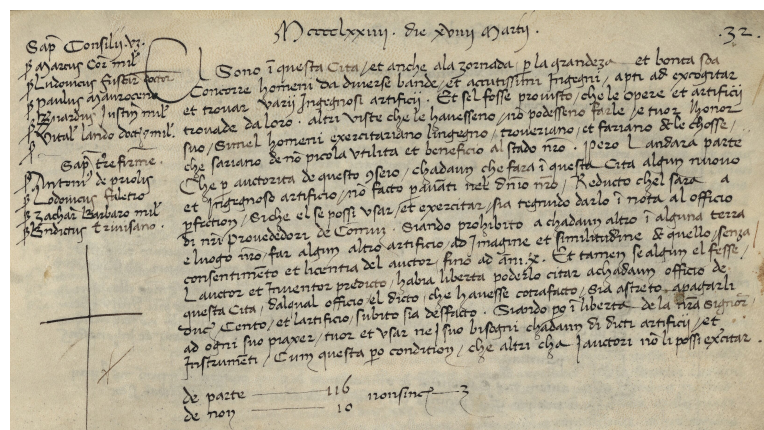 Mcccclxxiiij. die xviiij Martij. .32.
Sap̃ Consilij. vz.
ẜ Marcus Cor̃ mil̃
ẜ Ludovicus fuscar̃ doctor
ẜ Paulus Mauroceno
ẜ Bernardus Justiñ mil̃
ẜ Vital̃ lando doct̃ ⁊ mil̃
Sap̃ t̃re firme.
ẜ Antoni⁹ de priolis
ẜ Lodovicus filetto
ẜ Zachar̃ Barbaro mil̃
ẜ Bndictus trivisano.
El Sono ĩ questa Cita / et anche ala zornada / p̲ la grandeza et bonta soa
Concorre homeni da diverse bande / et acutissimi Ingegni / apti ad excogitar
et trovar varij Ingegnosi artificij. Et sel fosse provisto / che le opere et artificij
trovade da loro. altri viste che le havesseno / nõ podesseno farle / e tuor l honor
suo / Simel homeni exercitariano lingegno / troveriano / et fariano dele chosse /
che sariano de nõ picola utilita et beneficio al stado nr̃o. Pero L andara parte
Che p̲ auctorita de questo ↄseio / chadaun che fara ĩ questa Cita algun nuovo
et Ingegnoso artificio / nõ facto pavãti nel dñio nr̃o / Reducto chel sara a
p̲fection / Siche el se possi usar / et exercitar / sia tegnudo darlo ĩ nota al officio
di nr̃i Provededori de Comun. Siando prohibito a chadaun altro ĩ alguna terra
e luogo nr̃o / far algun altro artificio / ad Imagine et similitudine de quello / senza
consentimẽto et licentia del auctor / fino ad ãni .x. Et tamen se algun el fesse /
L auctor et Inventor predicto / habia liberta poderlo citar achadaun officio de
questa Cita / dalqual officio el dicto / che havesse cotrafacto / sia astreto apagarli
duc̃ Cento / et lartificio / subito sia desfacto. Siando po ĩ liberta de la nr̃a Signor̃
ad ogni suo piaxer / tuor et usar nei suo bisegni chadaun di dicti artificij / et
Instrumẽti / Cum questa po condition / che altri cha lauctori nõ li possi exercitar.
de parte 116 nonsinc̃ 3
de non 10